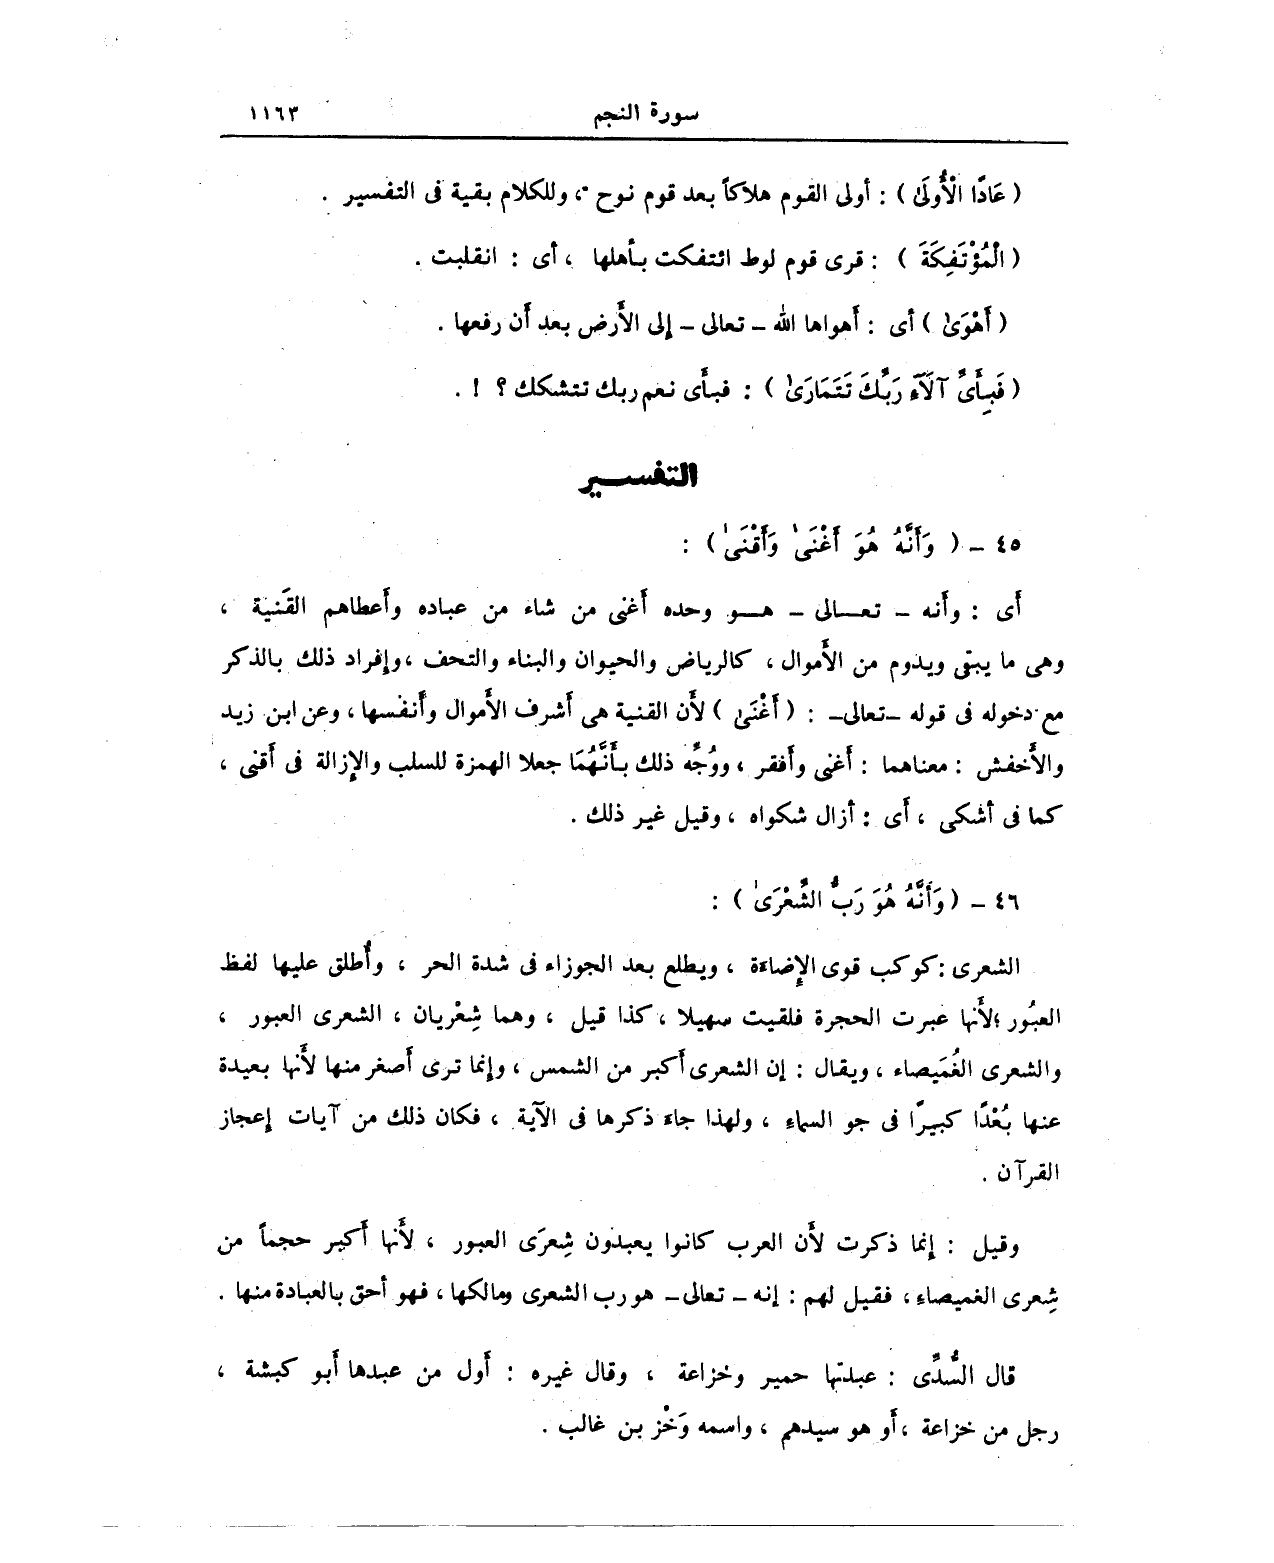 سورة النجم ١١٦٣
( عَادًا الْأُولَىٰ ) : أولى القوم هلاكاً بعد قوم نوح ، وللكلام بقية فى التفسير .
( الْمُؤْتَفِكَةَ ) : قرى قوم لوط ائتفكت بأهلها ، أى : انقلبت .
( أَهْوَىٰ ) أى : أهواها الله – تعالى – إلى الأرض بعد أن رفعها .
( فَبِأَىِّ آلَآءِ رَبِّكَ تَتَمَارَىٰ ) : فبأى نعم ربك تتشكك ؟ ! .
التفسير
٤٥ – ( وَأَنَّهُ هُوَ أَغْنَىٰ وَأَقْنَىٰ ) :
أى : وأنه – تعالى – هو وحده أغنى من شاء من عباده وأعطاهم القَنية ،
وهى ما يبقى ويدوم من الأموال ، كالرياض والحيوان والبناء والتحف ، وإفراد ذلك بالذكر
مع دخوله فى قوله –تعالى– : ( أَغْنَىٰ ) لأن القنية هى أشرف الأموال وأنفسها ، وعن ابن زيد
والأخفش : معناهما : أغنى وأفقر ، ووُجِّه ذلك بأَنَّهُمَا جعلا الهمزة للسلب والإزالة فى أقنى ،
كما فى أشكى ، أى : أزال شكواه ، وقيل غير ذلك .
٤٦ – ( وَأَنَّهُ هُوَ رَبُّ الشِّعْرَىٰ ) :
الشعرى : كوكب قوى الإضاءة ، ويطلع بعد الجوزاء فى شدة الحر ، وأُطلق عليها لفظ
العبُور ؛ لأنها عبرت الحجرة فلقيت سهيلا ، كذا قيل ، وهما شِعْريان ، الشعرى العبور ،
والشعرى الغُمَيصاء ، ويقال : إن الشعرى أكبر من الشمس ، وإنما ترى أصغر منها لأنها بعيدة
عنها بُعْدًا كبيرًا فى جو السماء ، ولهذا جاء ذكرها فى الآية ، فكان ذلك من آيات إعجاز
القرآن .
وقيل : إنما ذكرت لأن العرب كانوا يعبدون شِعرَى العبور ، لأنها أكبر حجماً من
شِعرى الغميصاء ، فقيل لهم : إنه – تعالى– هو رب الشعرى ومالكها ، فهو أحق بالعبادة منها .
قال السُّدِّى : عبدتها حمير وخزاعة ، وقال غيره : أول من عبدها أبو كبشة ،
رجل من خزاعة ، أو هو سيدهم ، واسمه وَخْز بن غالب .